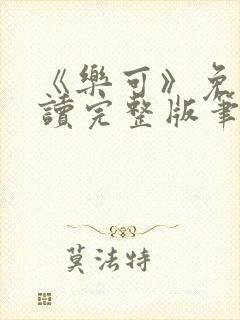 《樂可》免
讀完整版筆
莫法特